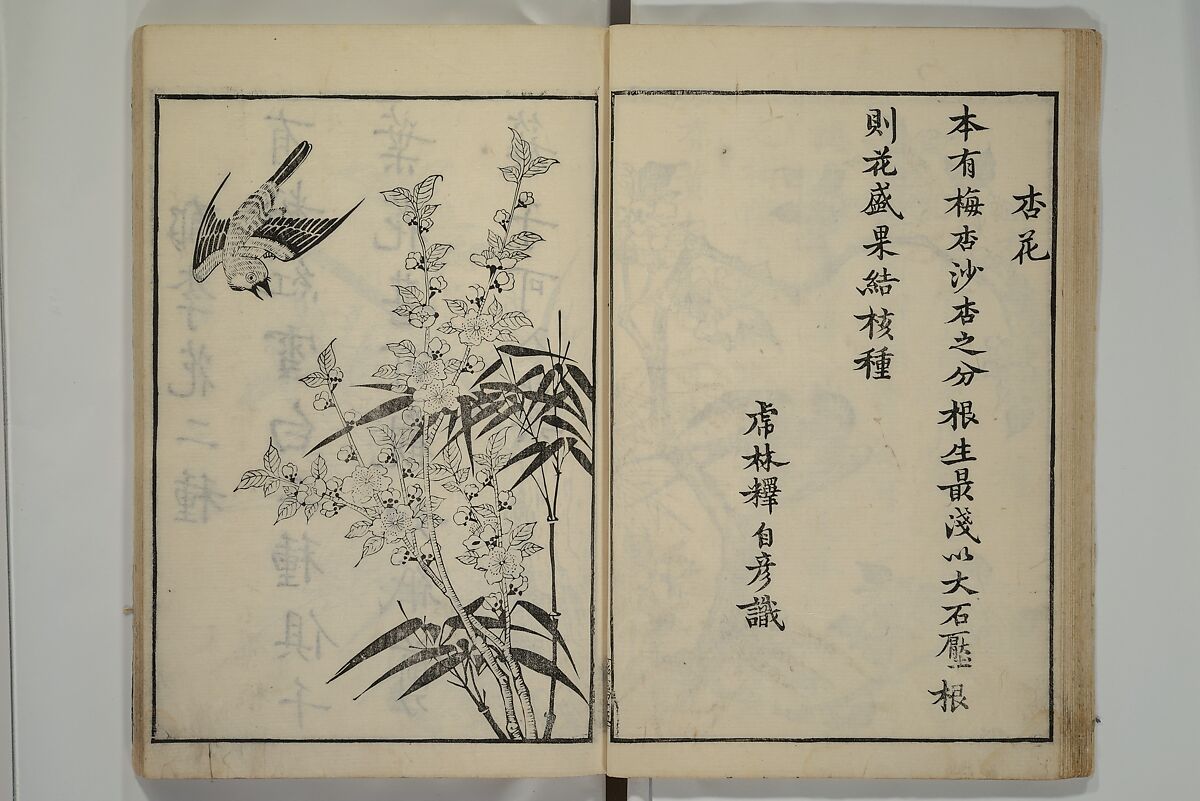 杏花
本有梅杏沙杏之分根生最淺以大石壓根
則花盛果結核種
虎林釋自彥識